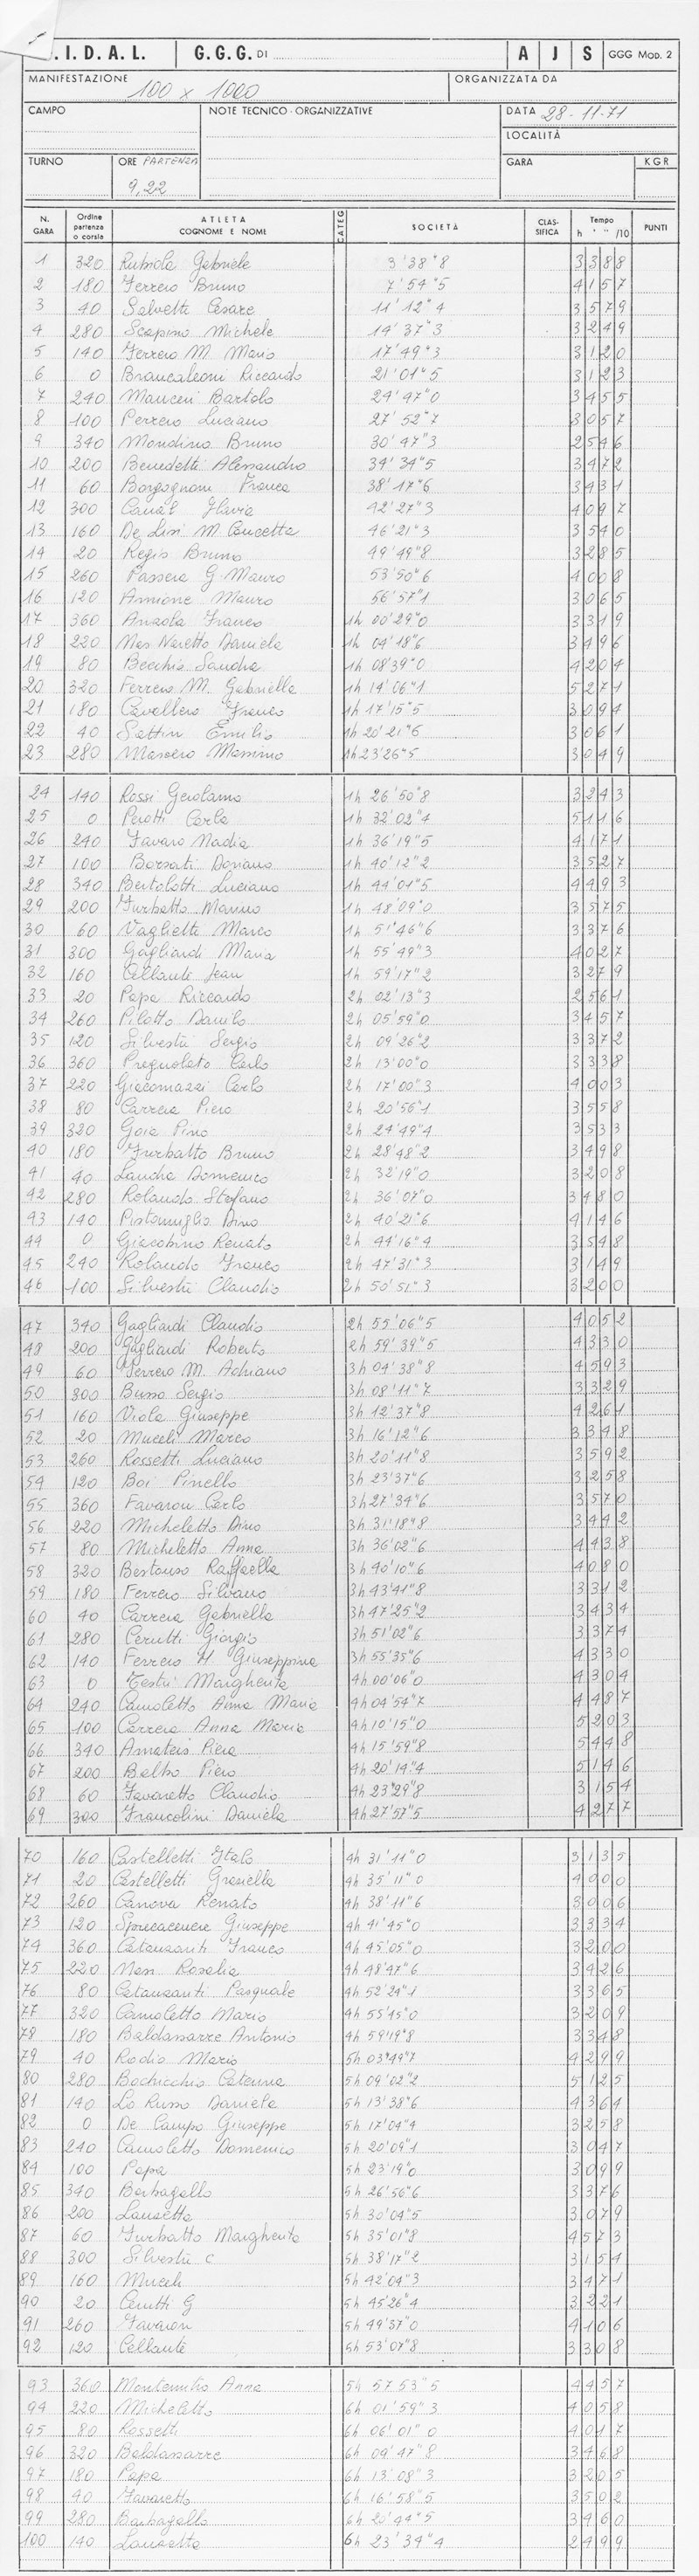 . I. D. A. L. G. G. G. DI A J S GGG MOD. 2
MANIFESTAZIONE 100 x 1000 ORGANIZZATA DA
CAMPO NOTE TECNICO-ORGANIZZATIVE DATA 28-11-71
LOCALITÀ
TURNO ORE PARTENZA GARA KGR
9,22
N. GARA Ordine partenza o corsia ATLETA COGNOME E NOME CATEG SOCIETÀ CLASSIFICA Tempo h ' " /10 PUNTI
1 320 Rubiola Gabriele 3'38"8 3 38 8
2 180 Ferrero Bruno 7'54"5 4 15 7
3 40 Salvetti Cesare 11'12"4 3 57 9
4 280 Scapino Michele 14'37"3 3 24 9
5 140 Ferrero M. Mario 17'49"3 3 12 0
6 0 Brancaleoni Riccardo 21'01"5 3 12 3
7 240 Manceri Bartolo 24'47"0 3 45 5
8 100 Perrero Luciano 27'52"7 3 05 7
9 340 Mondino Bruno 30'47"3 2 54 6
10 200 Benedetti Alessandro 34'34"5 3 47 2
11 60 Borgognoni Franca 38'17"6 3 43 1
12 300 Canal Flavia 42'27"3 4 09 7
13 160 De Lisi M. Concetta 46'21"3 3 54 0
14 20 Regis Bruno 49'49"8 3 28 5
15 260 Passera G. Mauro 53'50"6 4 00 8
16 120 Amione Mauro 56'57"1 3 06 5
17 360 Ansola Franco 1h 00'29"0 3 31 9
18 220 Mas Naretto Daniela 1h 04'18"6 3 49 6
19 80 Becchio Sandra 1h 08'39"0 4 20 4
20 320 Ferrero M. Gabriella 1h 14'06"1 5 27 1
21 180 Cavallero Franco 1h 17'15"5 3 09 4
22 40 Sattin Emilio 1h 20'21"6 3 06 1
23 280 Masoero Massimo 1h 23'26"5 3 04 9
24 140 Rossi Gerolamo 1h 26'50"8 3 24 3
25 0 Perotti Carla 1h 32'02"4 5 11 6
26 240 Favaro Nadia 1h 36'19"5 4 17 1
27 100 Borsati Doriano 1h 40'12"2 3 52 7
28 340 Bertolotti Luciano 1h 44'01"5 4 49 3
29 200 Furbatto Marino 1h 48'09"0 3 57 5
30 60 Vagliette Marco 1h 51'46"6 3 37 6
31 300 Gagliardi Maria 1h 55'49"3 4 02 7
32 160 Cellante Jean 1h 59'17"2 3 27 9
33 20 Papa Riccardo 2h 02'13"3 2 56 1
34 260 Pilotto Danilo 2h 05'59"0 3 45 7
35 120 Silvestri Sergio 2h 09'26"2 3 37 2
36 360 Pregnolato Carlo 2h 13'00"0 3 33 8
37 220 Giacomazzi Carlo 2h 17'00"3 4 00 3
38 80 Carrera Piero 2h 20'56"1 3 55 8
39 320 Goia Pino 2h 24'49"4 3 53 3
40 180 Furbatto Bruno 2h 28'48"2 3 49 8
41 40 Laudra Domenico 2h 32'19"0 3 20 8
42 280 Rolando Stefano 2h 36'07"0 3 48 0
43 140 Pistamiglio Dino 2h 40'21"6 4 14 6
44 0 Giacobino Renato 2h 44'16"4 3 54 8
45 240 Rolando Franco 2h 47'31"3 3 14 9
46 100 Silvestri Claudio 2h 50'51"3 3 20 0
47 340 Gagliardi Claudio 2h 55'06"5 4 05 2
48 200 Gagliardi Roberto 2h 59'39"5 4 33 0
49 60 Ferrero M. Adriano 3h 04'38"8 4 59 3
50 300 Busso Sergio 3h 08'11"7 3 32 9
51 160 Viola Giuseppe 3h 12'37"8 4 26 1
52 20 Muceli Marco 3h 16'12"6 3 34 8
53 260 Rossetti Luciano 3h 20'11"8 3 59 2
54 120 Boi Pinello 3h 23'37"6 3 25 8
55 360 Favaron Carlo 3h 27'34"6 3 57 0
56 220 Micheletto Dino 3h 31'18"8 3 44 2
57 80 Micheletto Anna 3h 36'02"6 4 43 8
58 320 Bertouso Raffaella 3h 40'10"6 4 08 0
59 180 Ferrero Silvano 3h 43'41"8 3 31 2
60 40 Carrera Gabriella 3h 47'25"2 3 43 4
61 280 Cerutti Giorgio 3h 51'02"6 3 37 4
62 140 Ferrero M. Giuseppina 3h 55'35"6 4 33 0
63 0 Testù Margherita 4h 00'06"0 4 30 4
64 240 Camoletto Anna Maria 4h 04'54"7 4 48 7
65 100 Carrera Anna Maria 4h 10'15"0 5 20 3
66 340 Amateis Piera 4h 15'59"8 5 44 8
67 200 Balbo Piero 4h 20'14"4 5 14 6
68 60 Favaretto Claudio 4h 23'29"8 3 15 4
69 300 Francolini Daniela 4h 27'57"5 4 27 7
70 160 Castelletti Italo 4h 31'11"0 3 13 5
71 20 Castelletti Graziella 4h 35'11"0 4 00 0
72 260 Canova Renato 4h 38'11"6 3 00 6
73 120 Sprecacenere Giuseppe 4h 41'45"0 3 33 4
74 360 Catanzariti Franco 4h 45'05"0 3 20 0
75 220 Mas Rosalia 4h 48'47"6 3 42 6
76 80 Catanzariti Pasquale 4h 52'24"1 3 36 5
77 320 Camoletto Mario 4h 55'45"0 3 20 9
78 180 Baldassarre Antonio 4h 59'19"8 3 34 8
79 40 Rodio Mario 5h 03'49"7 4 29 9
80 280 Bochicchio Caterina 5h 09'02"2 5 12 5
81 140 Lo Russo Daniela 5h 13'38"6 4 36 4
82 0 De Campo Giuseppe 5h 17'04"4 3 25 8
83 240 Camoletto Domenico 5h 20'09"1 3 04 7
84 100 Papa 5h 23'19"0 3 09 9
85 340 Barbagallo 5h 26'56"6 3 37 6
86 200 Lausetta 5h 30'04"5 3 07 9
87 60 Furbatto Margherita 5h 35'01"8 4 57 3
88 300 Silvestri C 5h 38'17"2 3 15 4
89 160 Muceli 5h 42'04"3 3 47 1
90 20 Cerutti G 5h 45'26"4 3 22 1
91 260 Favaron 5h 49'37"0 4 10 6
92 120 Cellante 5h 53'07"8 3 30 8
93 360 Montemitro Anna 5h 57'53"5 4 45 7
94 220 Micheletto 6h 01'59"3 4 05 8
95 80 Rossetti 6h 06'01"0 4 01 7
96 320 Baldassarre 6h 09'47"8 3 46 8
97 180 Papa 6h 13'08"3 3 20 5
98 40 Favaretto 6h 16'58"5 3 50 2
99 280 Barbagallo 6h 20'44"5 3 46 0
100 140 Lausetta 6h 23'34"4 2 49 9